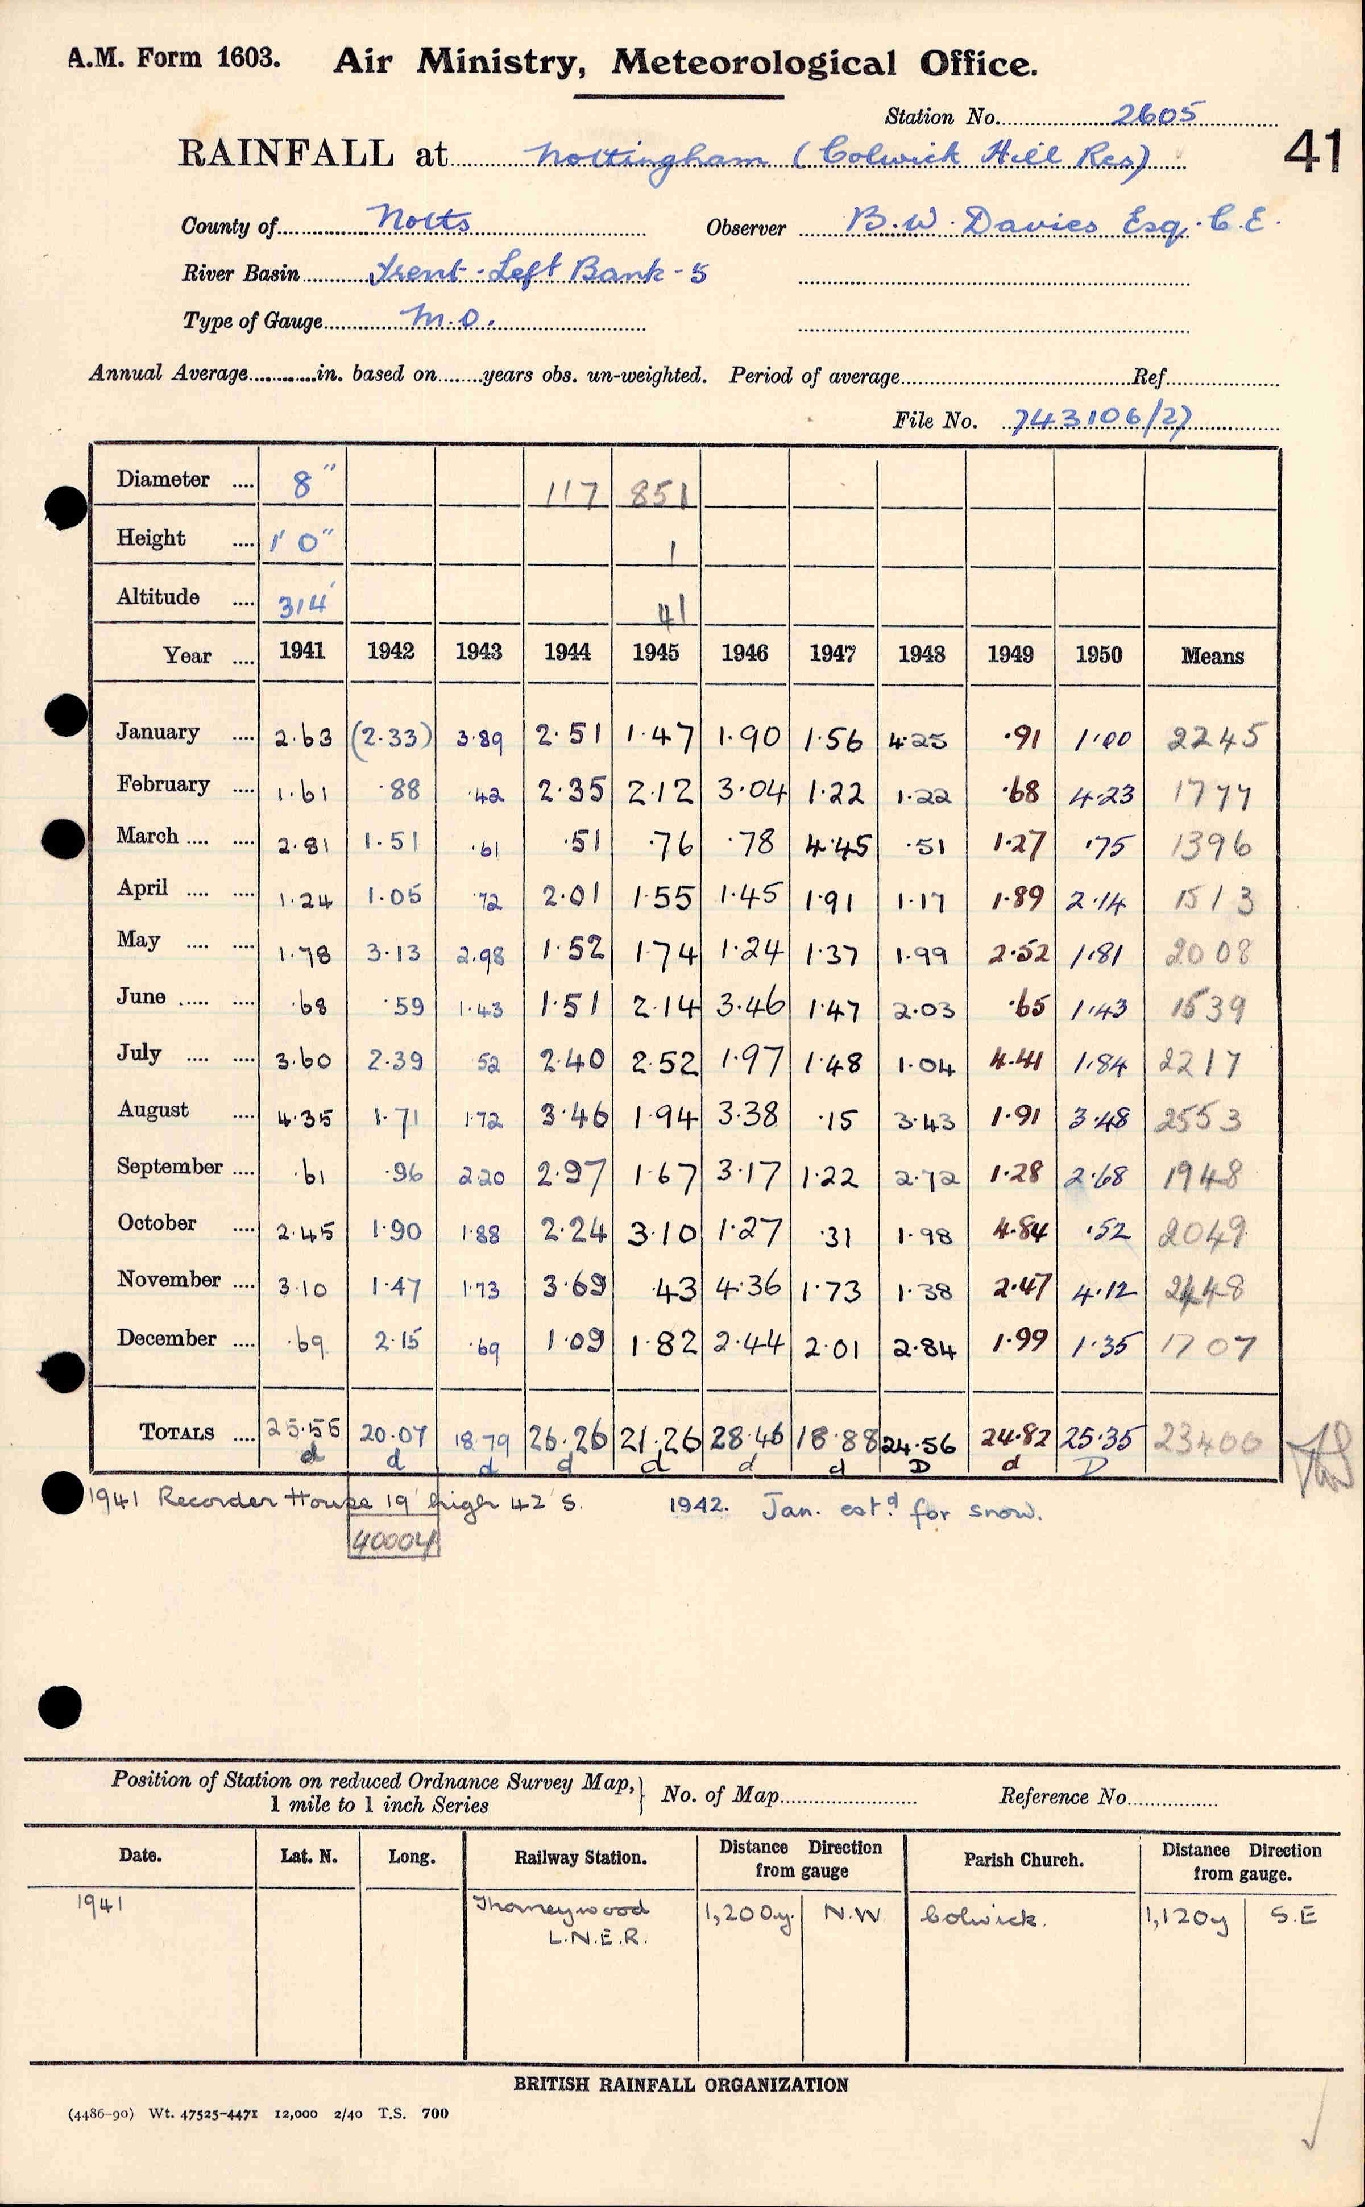 A.M. Form 1603. Air Ministry, Meteorological Office.
Station No. 2605
41
RAINFALL at Nottingham (Colwick Hill Res)
County of Notts Observer B.W. Davies Esq. C.E.
River Basin Trent-Left Bank-5
Type of Gauge M.O.
Annual Average in. based on years obs. un-weighted. Period of average Ref
File No. 743106/27
Diameter 8" 117 851
Height 1' 0" 1
Altitude 314' 41
Year 1941 1942 1943 1944 1945 1946 1947 1948 1949 1950 Means
January 2.63 (2.33) 3.89 2.51 1.47 1.90 1.56 4.25 .91 1.00 2245
February 1.61 .88 .42 2.35 2.12 3.04 1.22 1.22 .68 4.23 1777
March 2.81 1.51 .61 .51 .76 .78 4.45 .51 1.27 .75 1396
April 1.24 1.05 .72 2.01 1.55 1.45 1.91 1.17 1.89 2.14 1513
May 1.78 3.13 2.98 1.52 1.74 1.24 1.37 1.99 2.52 1.81 2008
June .68 .59 1.43 1.51 2.14 3.46 1.47 2.03 .65 1.43 1539
July 3.60 2.39 52 2.40 2.52 1.97 1.48 1.04 4.41 1.84 2217
August 4.35 1.71 1.72 3.46 1.94 3.38 .15 3.43 1.91 3.48 2553
September .61 .96 2.20 2.97 1.67 3.17 1.22 2.72 1.28 2.68 1948
October 2.45 1.90 1.88 2.24 3.10 1.27 .31 1.98 4.84 .52 2049
November 3.10 1.47 1.73 3.69 .43 4.36 1.73 1.38 2.47 4.12 2448
December .69 2.15 .69 1.09 1.82 2.44 2.01 2.84 1.99 1.35 1707
TOTALS 25.55 20.07 18.79 26.26 21.26 28.46 18.88 24.56 24.82 25.35 23400
d d d d d d d D d D
1941 Recorder House 19' high 42' S. 1942. Jan. estd. for snow.
40004
Position of Station on reduced Ordnance Survey Map, } No. of Map Reference No
1 mile to 1 inch Series
Date. Lat. N. Long. Railway Station. Distance Direction from gauge Parish Church. Distance Direction from gauge.
1941 Thorneywood 1,200y. N.W Colwick. 1,120y S.E
L.N.E.R.
BRITISH RAINFALL ORGANIZATION
(4486-90) Wt. 47525-4471 12,000 2/40 T.S. 700